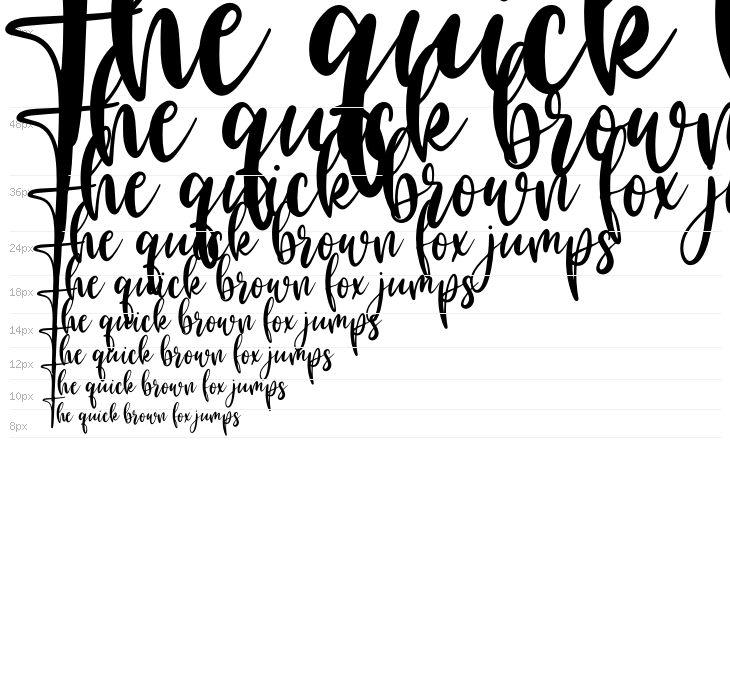 The quick
48px The quick brown
36px The quick brown fox
24px The quick brown fox jumps
18px The quick brown fox jumps
14px The quick brown fox jumps
12px The quick brown fox jumps
10px The quick brown fox jumps
8px The quick brown fox jumps